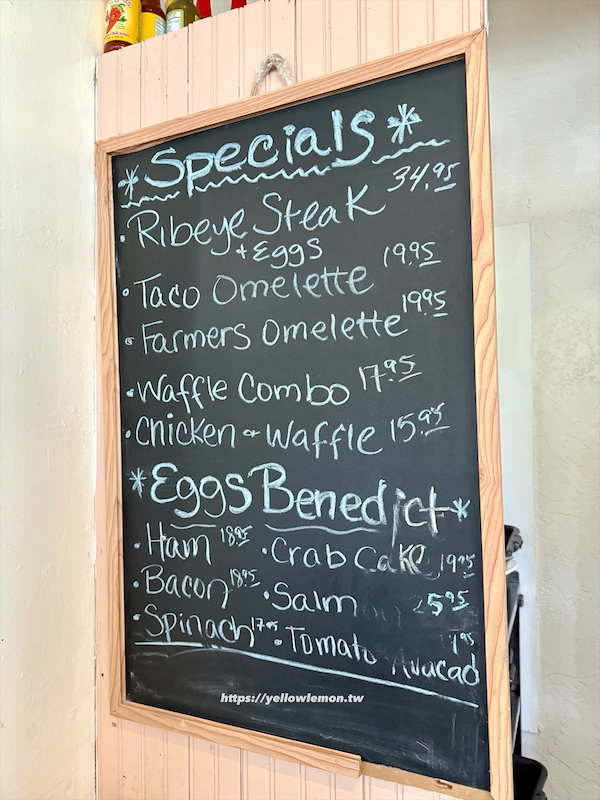 *Specials*
• Ribeye Steak 34.95
+ Eggs
• Taco Omelette 19.95
• Farmers Omelette 19.95
• Waffle Combo 17.95
• Chicken & Waffle 15.95
*Eggs Benedict*
• Ham 18.95 • Crab Cake 19.95
• Bacon 18.95 • Salm 5.95
• Spinach 17.95 • Tomato Avacad
https://yellowlemon.tw